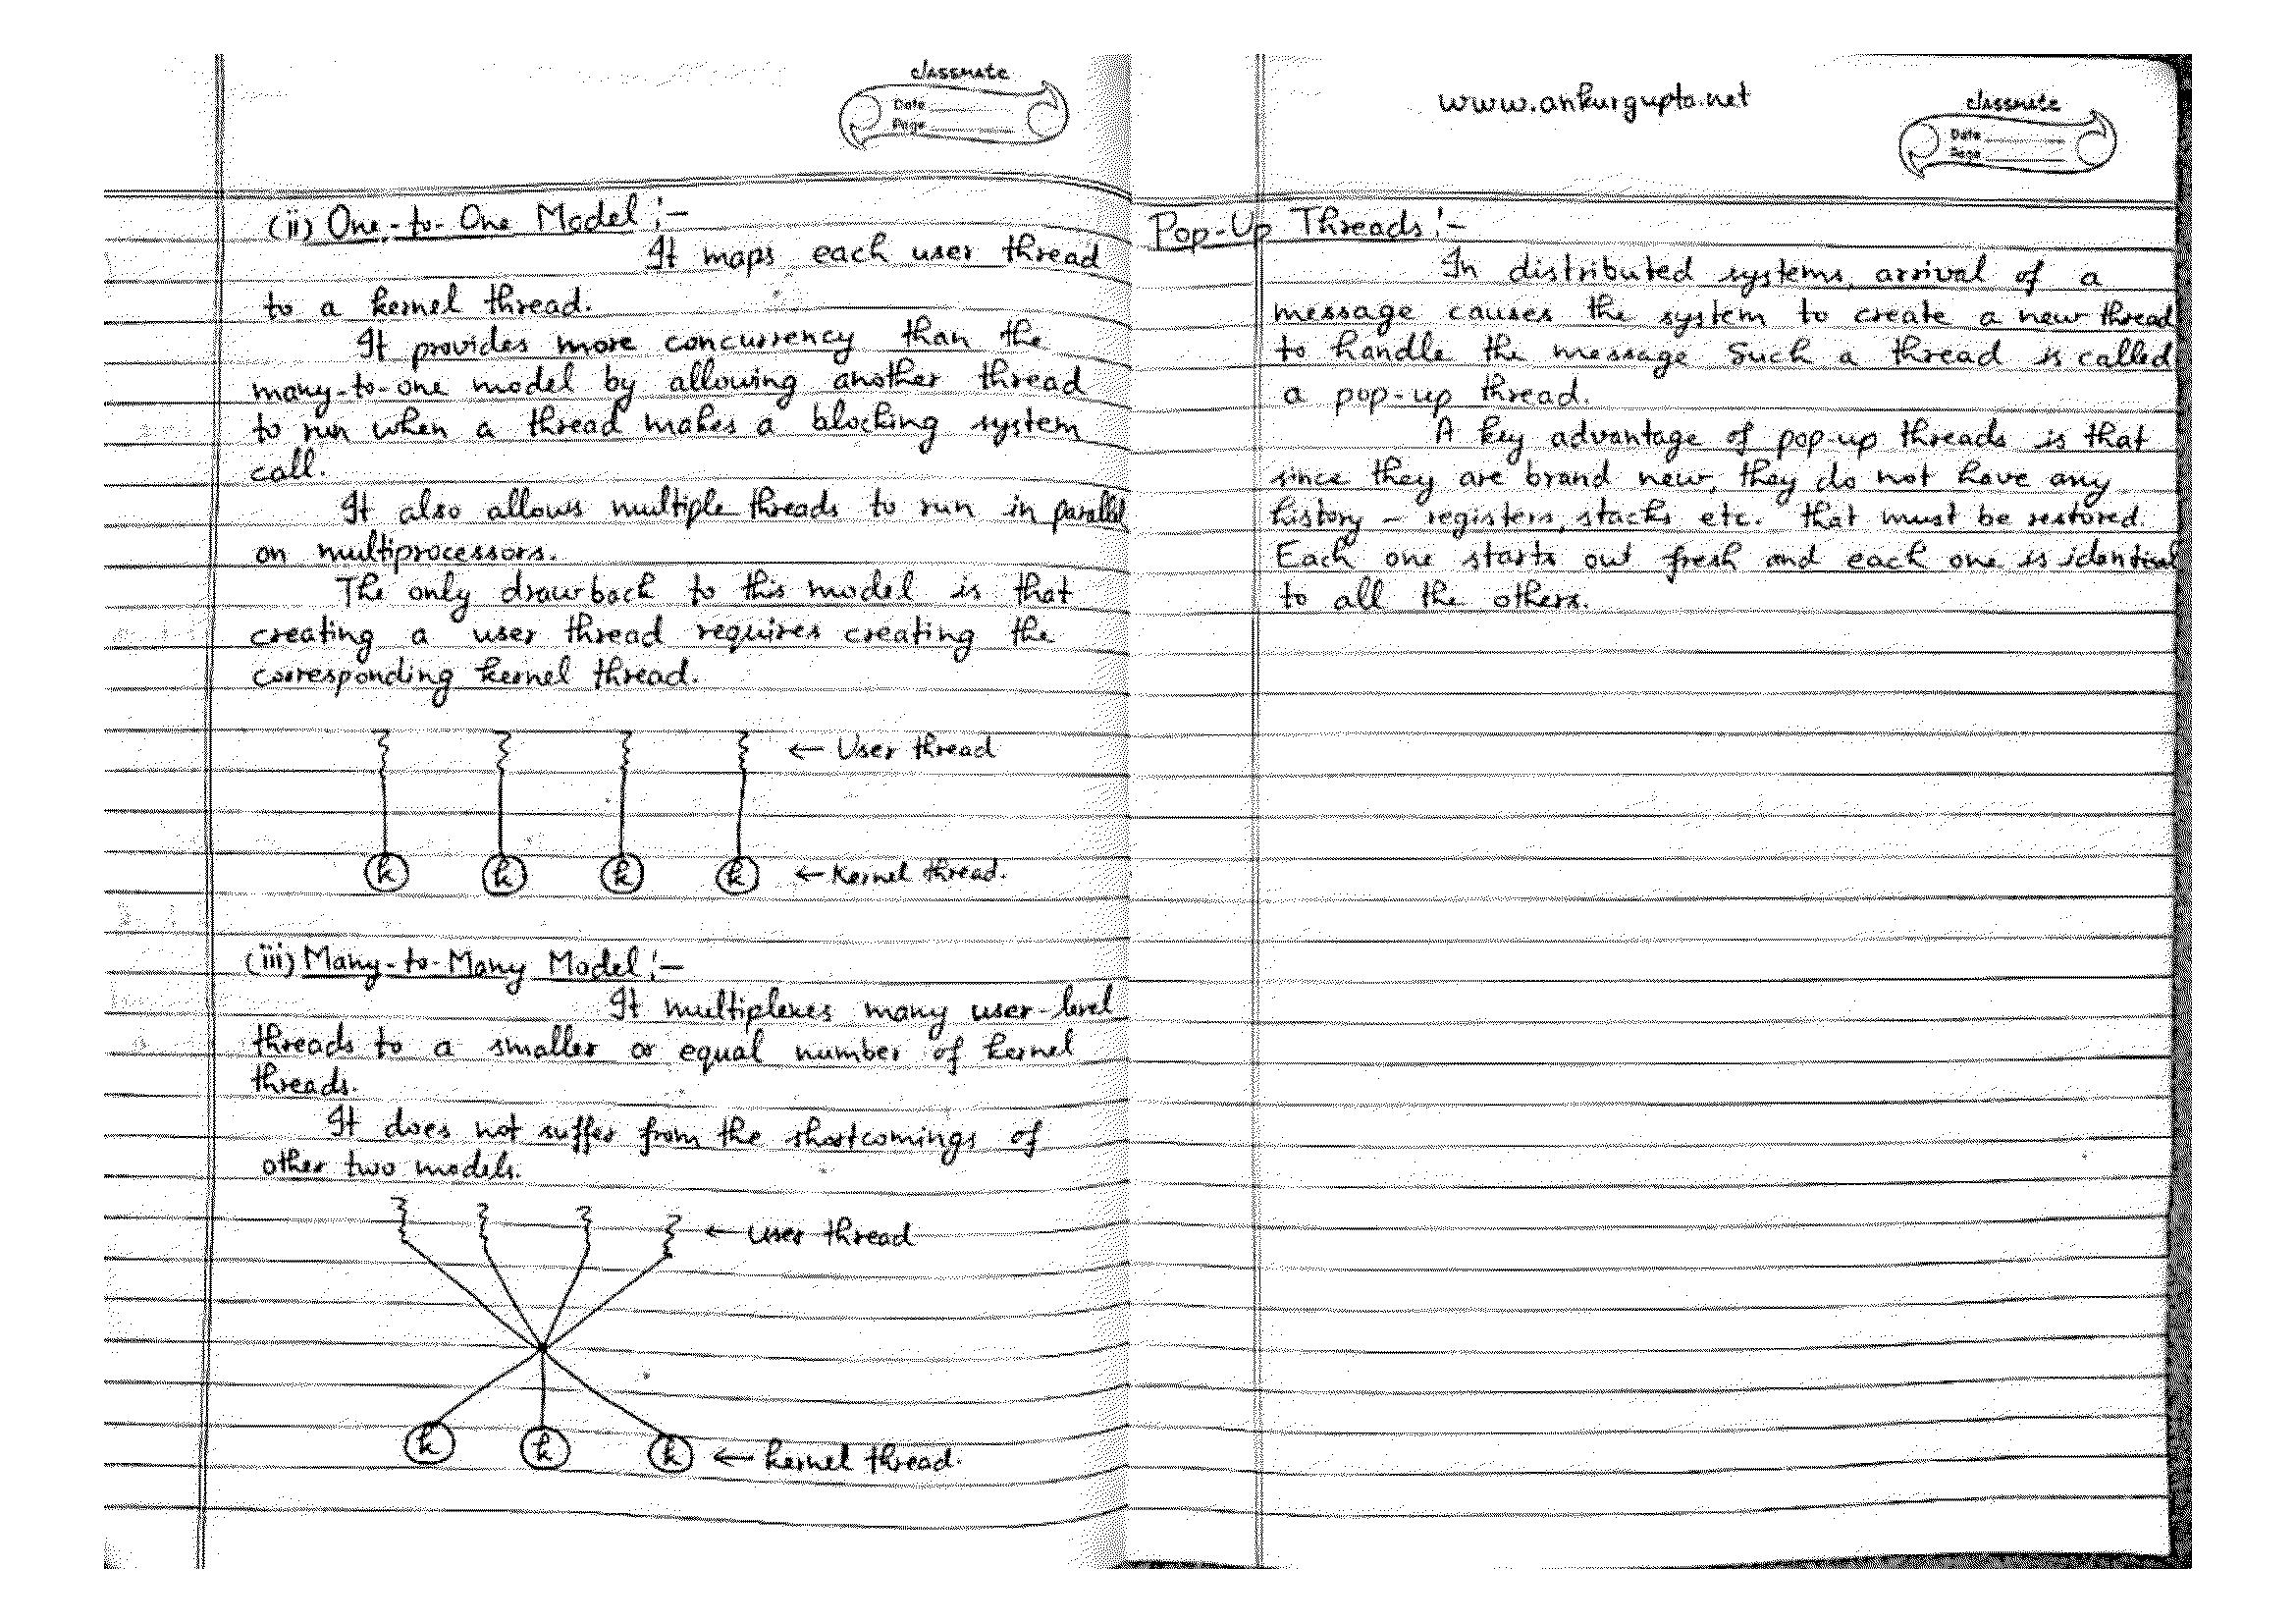 classmate
Date
Page
(ii) One-to-One Model :-
It maps each user thread
to a kernel thread.
It provides more concurrency than the
many-to-one model by allowing another thread
to run when a thread makes a blocking system
call.
It also allows multiple threads to run in parallel
on multiprocessors.
The only drawback to this model is that
creating a user thread requires creating the
corresponding kernel thread.
← User thread
k k k k ← Kernel thread.
(iii) Many-to-Many Model :-
It multiplexes many user-level
threads to a smaller or equal number of kernel
threads.
It does not suffer from the shortcomings of
other two models.
← user thread
k k k ← kernel thread.
www.ankurgupta.net
classmate
Date
Page
Pop-Up Threads :-
In distributed systems, arrival of a
message causes the system to create a new thread
to handle the message Such a thread is called
a pop-up thread.
A key advantage of pop-up threads is that
since they are brand new, they do not have any
history - registers, stacks etc. that must be restored.
Each one starts out fresh and each one is identical
to all the others.